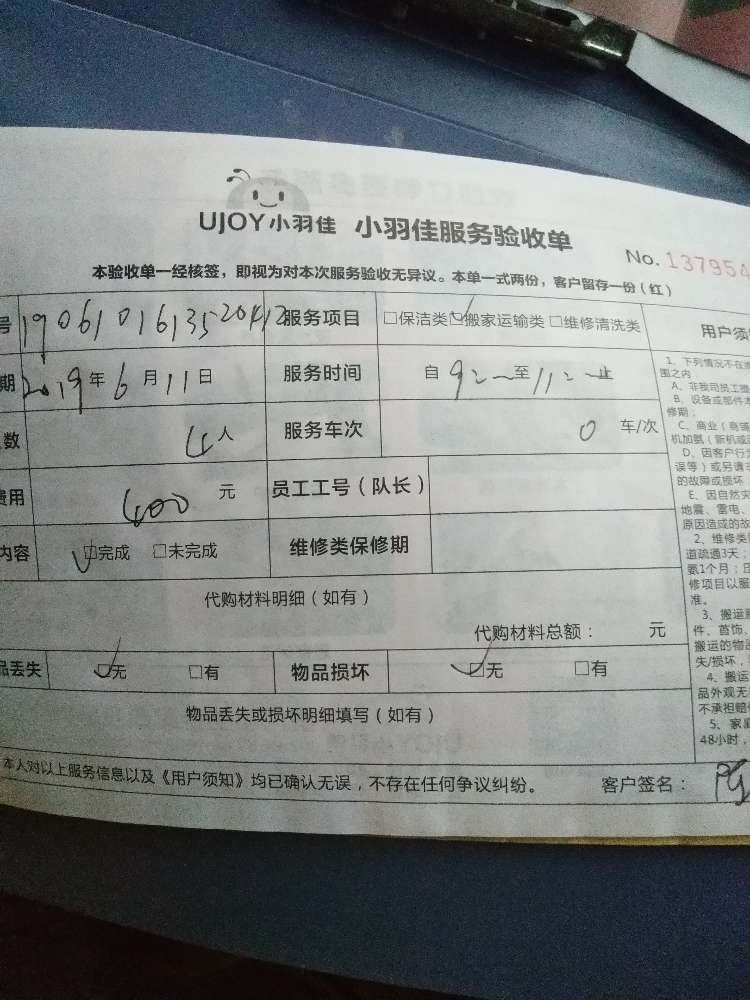 UJOY小羽佳 小羽佳服务验收单
No. 137954
本验收单一经核签，即视为对本次服务验收无异议。本单一式两份，客户留存一份（红）
号 服务项目 □保洁类 □搬家运输类 □维修清洗类 用户须
期 2019年6月11日 服务时间 自 至 止
数 4人 服务车次 0 车/次
费用 400 元 员工工号（队长）
内容 □完成 □未完成 维修类保修期
代购材料明细（如有）
代购材料总额： 元
品丢失 □无 □有 物品损坏 □无 □有
物品丢失或损坏明细填写（如有）
本人对以上服务信息以及《用户须知》均已确认无误，不存在任何争议纠纷。 客户签名：
1、下列情况不在
围之内
A、非我司员工
B、设备或部件本
修期；
C、商业（商铺
机加氨（新机或
D、因客户行
误等）或另请
的故障或损坏
E、因自然灾
地震、雷电、
原因造成的故
2、维修类
道疏通3天；
氨1个月；
修项目以服
准。
3、搬运
件、首饰、
搬运的物品
失/损坏，
4、搬运
品外观无
不承担赔
5、家
48小时，